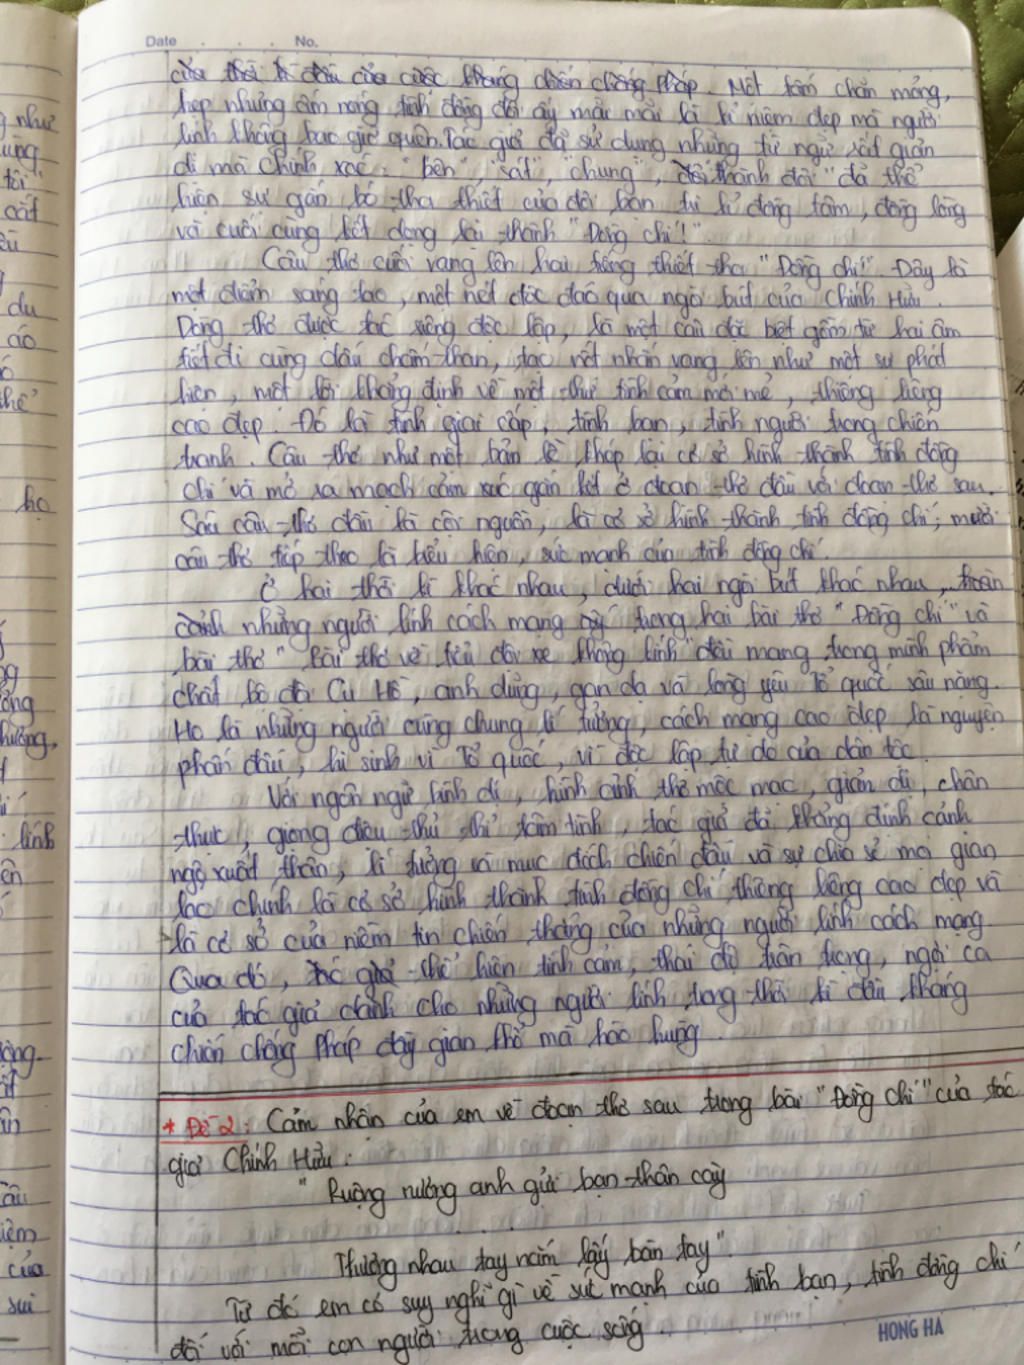 Date . . . No.
của thời kì đầu của cuộc kháng chiến chống Pháp. Một tấm chăn mỏng,
hẹp nhưng ấm nóng tình đồng đội ấy mãi mãi là kỉ niệm đẹp mà người
lính không bao giờ quên. Tác giả đã sử dụng những từ ngữ rất giản
dị mà chính xác: "bên", "sát", "chung", "đôi" thành đôi" đã thể
hiện sự gắn bó tha thiết của đôi bạn tri kỉ đồng tâm, đồng lòng
và cuối cùng kết đọng lại thành "Đồng chí!".
Câu thơ cuối vang lên hai tiếng thiết tha "Đồng chí!" Đây là
một điểm sáng tạo, một nét độc đáo qua ngòi bút của Chính Hữu.
Dòng thơ được tác riêng độc lập, là một câu đặc biệt gồm từ hai âm
tiết đi cùng dấu chấm than, tạo nét nhấn vang lên như một sự phát
hiện, một lời khẳng định về một thứ tình cảm mới mẻ, thiêng liêng
cao đẹp. Đó là tình giai cấp, tình bạn, tình người trong chiến
tranh. Câu thơ như một bản lề khép lại cơ sở hình thành tình đồng
chí và mở ra mạch cảm xúc gắn kết ở đoạn thơ đầu với đoạn thơ sau.
Sáu câu thơ đầu là cội nguồn, là cơ sở hình thành tình đồng chí; mười
câu thơ tiếp theo là biểu hiện, sức mạnh của tình đồng chí.
Ở hai thời kì khác nhau, dưới hai ngòi bút khác nhau, hoàn
cảnh những người lính cách mạng trong hai bài thơ "Đồng chí" và
bài thơ "Bài thơ về tiểu đội xe không kính" đều mang trong mình phẩm
chất bộ đội Cụ Hồ, anh dũng, gan dạ và lòng yêu Tổ quốc sâu nặng.
Họ là những người cùng chung lí tưởng, cách mạng cao đẹp là nguyện
phấn đấu, hi sinh vì Tổ quốc, vì độc lập tự do của dân tộc.
Với ngôn ngữ bình dị, hình ảnh thơ mộc mạc, giản dị, chân
thực, giọng điệu thủ thỉ tâm tình, tác giả đã khẳng định cảnh
ngộ xuất thân, lí tưởng và mục đích chiến đấu và sự chia sẻ mọi gian
lao chính là cơ sở hình thành tình đồng chí thiêng liêng cao đẹp và
là cơ sở của niềm tin chiến thắng của những người lính cách mạng
Qua đó, tác giả thể hiện tình cảm, thái độ trân trọng, ngợi ca
của tác giả dành cho những người lính trong thời kì đầu kháng
chiến chống Pháp đầy gian khổ mà hào hùng.
* Đề 2: Cảm nhận của em về đoạn thơ sau trong bài "Đồng chí" của tác
giả Chính Hữu:
"Ruộng nương anh gửi bạn thân cày
Thương nhau tay nắm lấy bàn tay".
Từ đó em có suy nghĩ gì về sức mạnh của tình bạn, tình đồng chí
đối với mỗi con người trong cuộc sống.
HONG HA